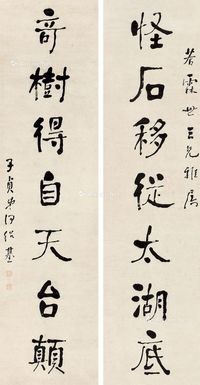 若霖世三兄雅屬
怪石移從太湖底
奇樹得自天台顛
子貞弟何紹基